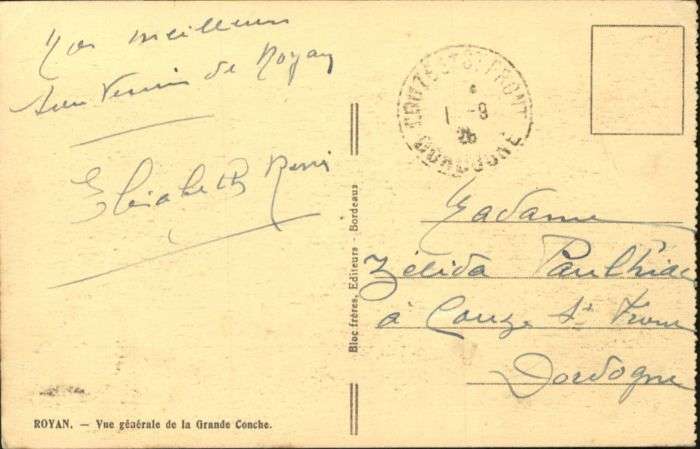 Nos meilleurs
souvenirs de Royan
Elisabeth
COUZE ST FRONT
1 -9
DORDOGNE
Bloc frères, Editeurs - Bordeaux
Madame
Zélida Paulhiac
à Couze St Front
Dordogne
ROYAN. — Vue générale de la Grande Conche.